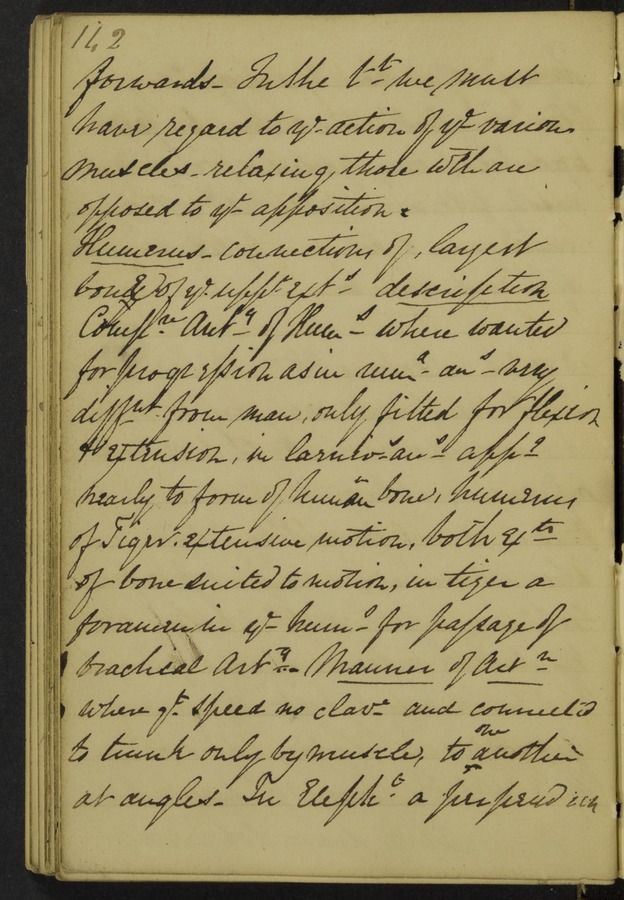 142
forwards - In the tt we must
have regard to ye action of ye various
muscles - relaxing, those wch are
opposed to ye apposition.
Humerus - connections of, largest
bone of ye uppr exts description
Compve Anty of Hums where wanted
for progression as in ruma ans very
diffrnt from man, only fitted for flexion
& extension, in Carnivs ans appr
nearly to form of human bone, humerus
of Tiger. extensive motion, both exts
of bone suited to motion, in tiger a
foramen in ye hums for passage of
brachial Arty - Manner of Actn
where gt speed no clave and connected
to trunk only by muscle, to one another
at angles - In Elepht a perpendicu